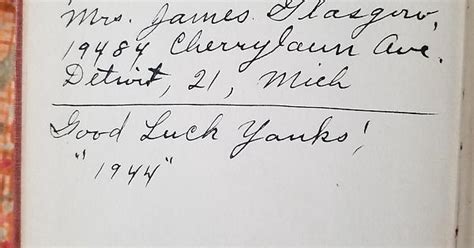 Mrs. James Glasgow,
19484 Cherrylawn Ave.
Detroit, 21, Mich
Good Luck Yanks!,
"1944"